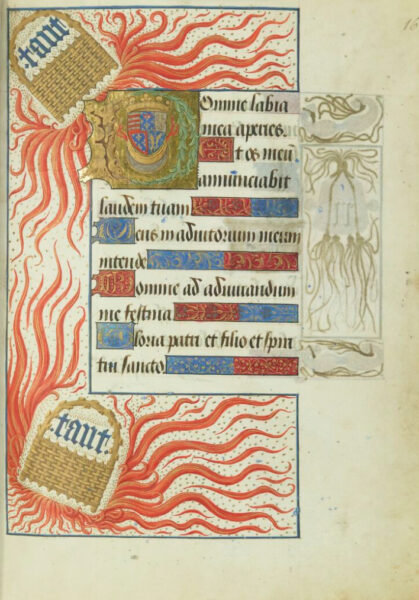 tant
16
Domine labia
mea aperies.
Et os meū
annunciabit
laudem tuam
Deus in adiutorium meum
intende
Domine ad adiuuandum
me festina
Gloria patri et filio et spiri
tui sancto
.tant.